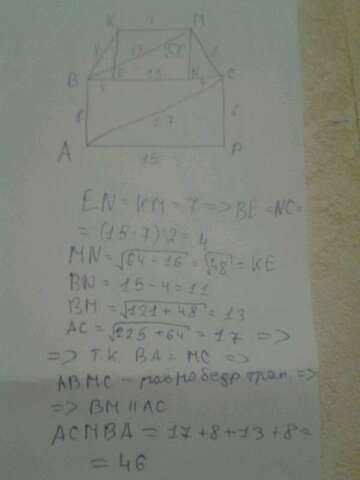 K 7 M
8 13 √48 8
B 4 E 15 N 4 C
8 17 8
A 15 P
EN = KM = 7 => BE = NC =
= (15 - 7) : 2 = 4
MN = √64 - 16 = √48 = KE
BN = 15 - 4 = 11
BM = √121 + 48 = 13
AC = √225 + 64 = 17 =>
=> т.к. BA = MC =>
ABMC - равнобедр трап. =>
=> BM || AC
ACMBA = 17 + 8 + 13 + 8 =
= 46